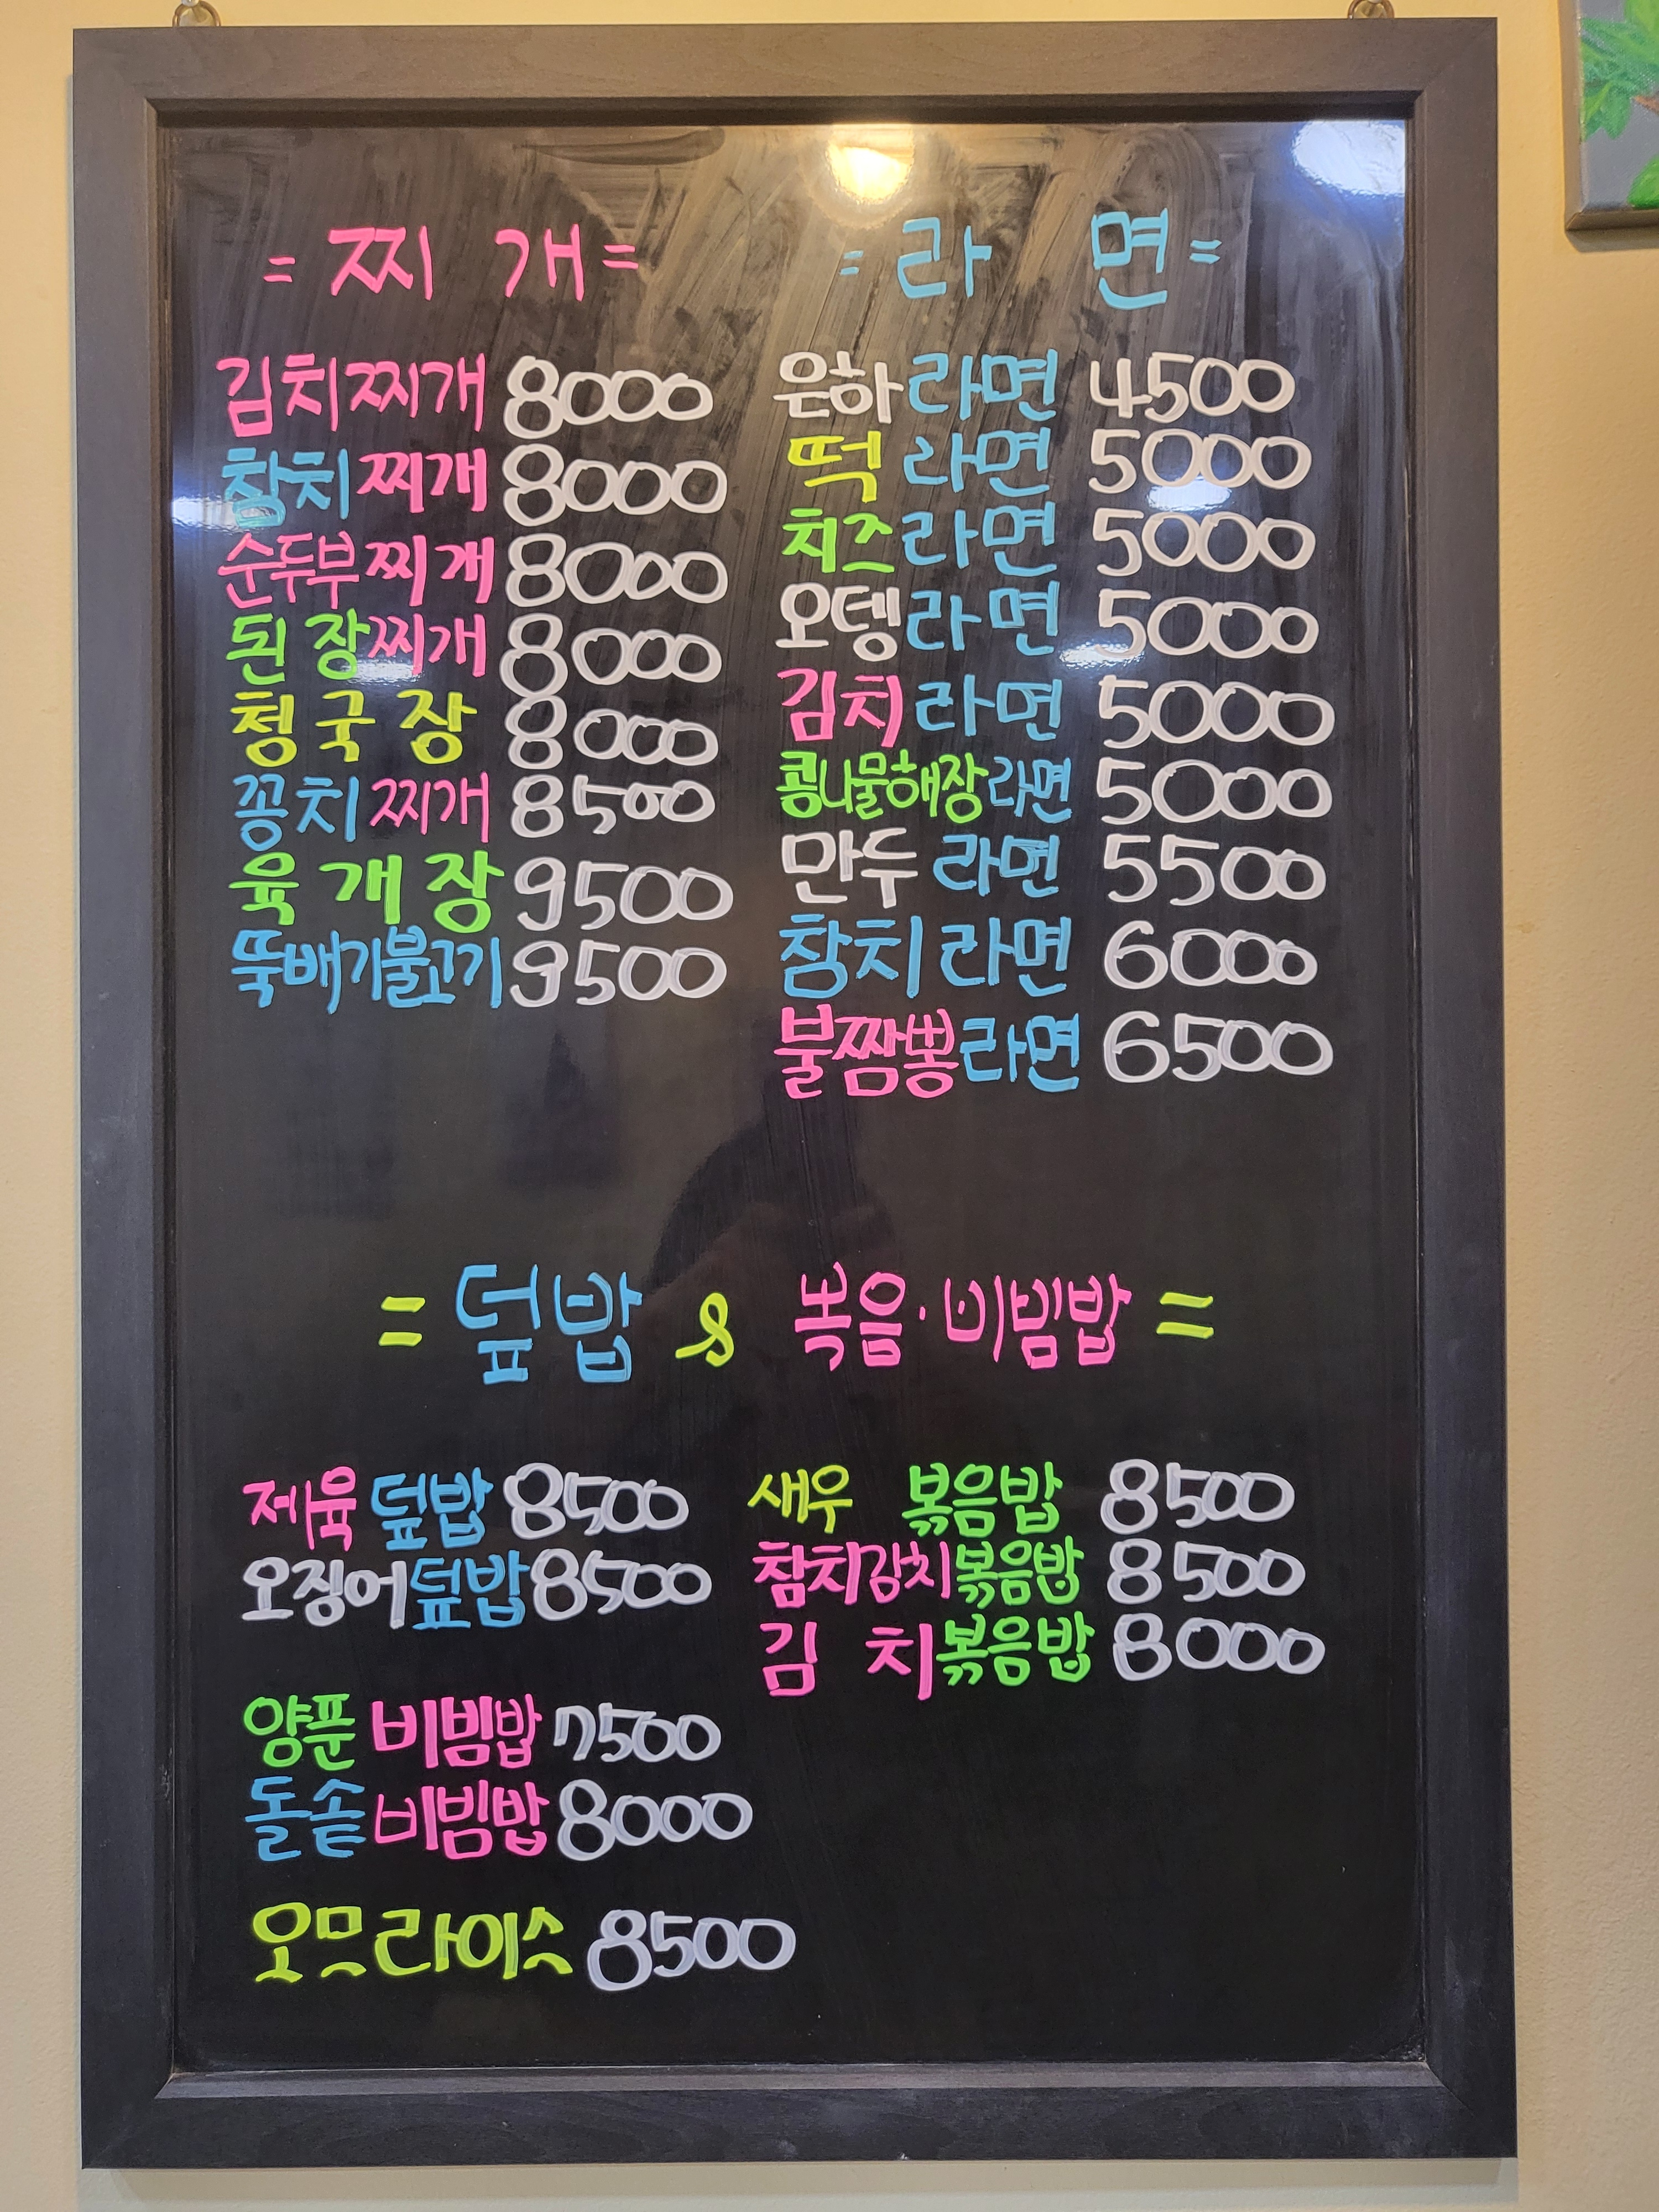 = 찌 개 =
김치찌개 8000
참치찌개 8000
순두부찌개 8000
된장찌개 8000
청국장 8000
꽁치찌개 8500
육개장 9500
뚝배기불고기 9500
= 라 면 =
은하라면 4500
떡라면 5000
치즈라면 5000
오뎅라면 5000
김치라면 5000
콩나물해장라면 5000
만두라면 5500
참치라면 6000
불짬뽕라면 6500
= 덮밥 & 볶음·비빔밥 =
제육덮밥 8500
오징어덮밥 8500
양푼비빔밥 7500
돌솥비빔밥 8000
오므라이스 8500
새우 볶음밥 8500
참치김치볶음밥 8500
김 치볶음밥 8000